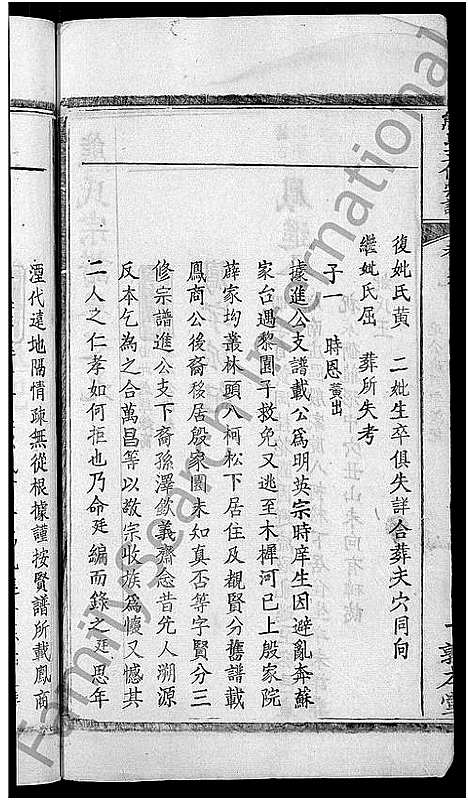 復妣氏黃　二妣生卒俱失詳合葬夫穴同向
繼妣氏屈　葬所失考
子一　時恩黃出
據進公支譜載公爲明英宗時庠生因避亂奔蘇
家台遇黎園子救免又逃至木樨河已上殷家院
薜家均叢林頭八柯松下居住及覩賢分舊譜載
鳳商公後裔移居殷家園未知真否等字賢分三
修宗譜進公支下裔孫澤欽義齋念昔先人溯源
反本乞為之合萬昌等以敬宗收族爲懷又憾其
二人之仁孝如何拒也乃命廷編而錄之廷思年
湮代遠地隔情疎無從根據謹按賢譜所載鳳商
一敦本堂
FamilySearch International